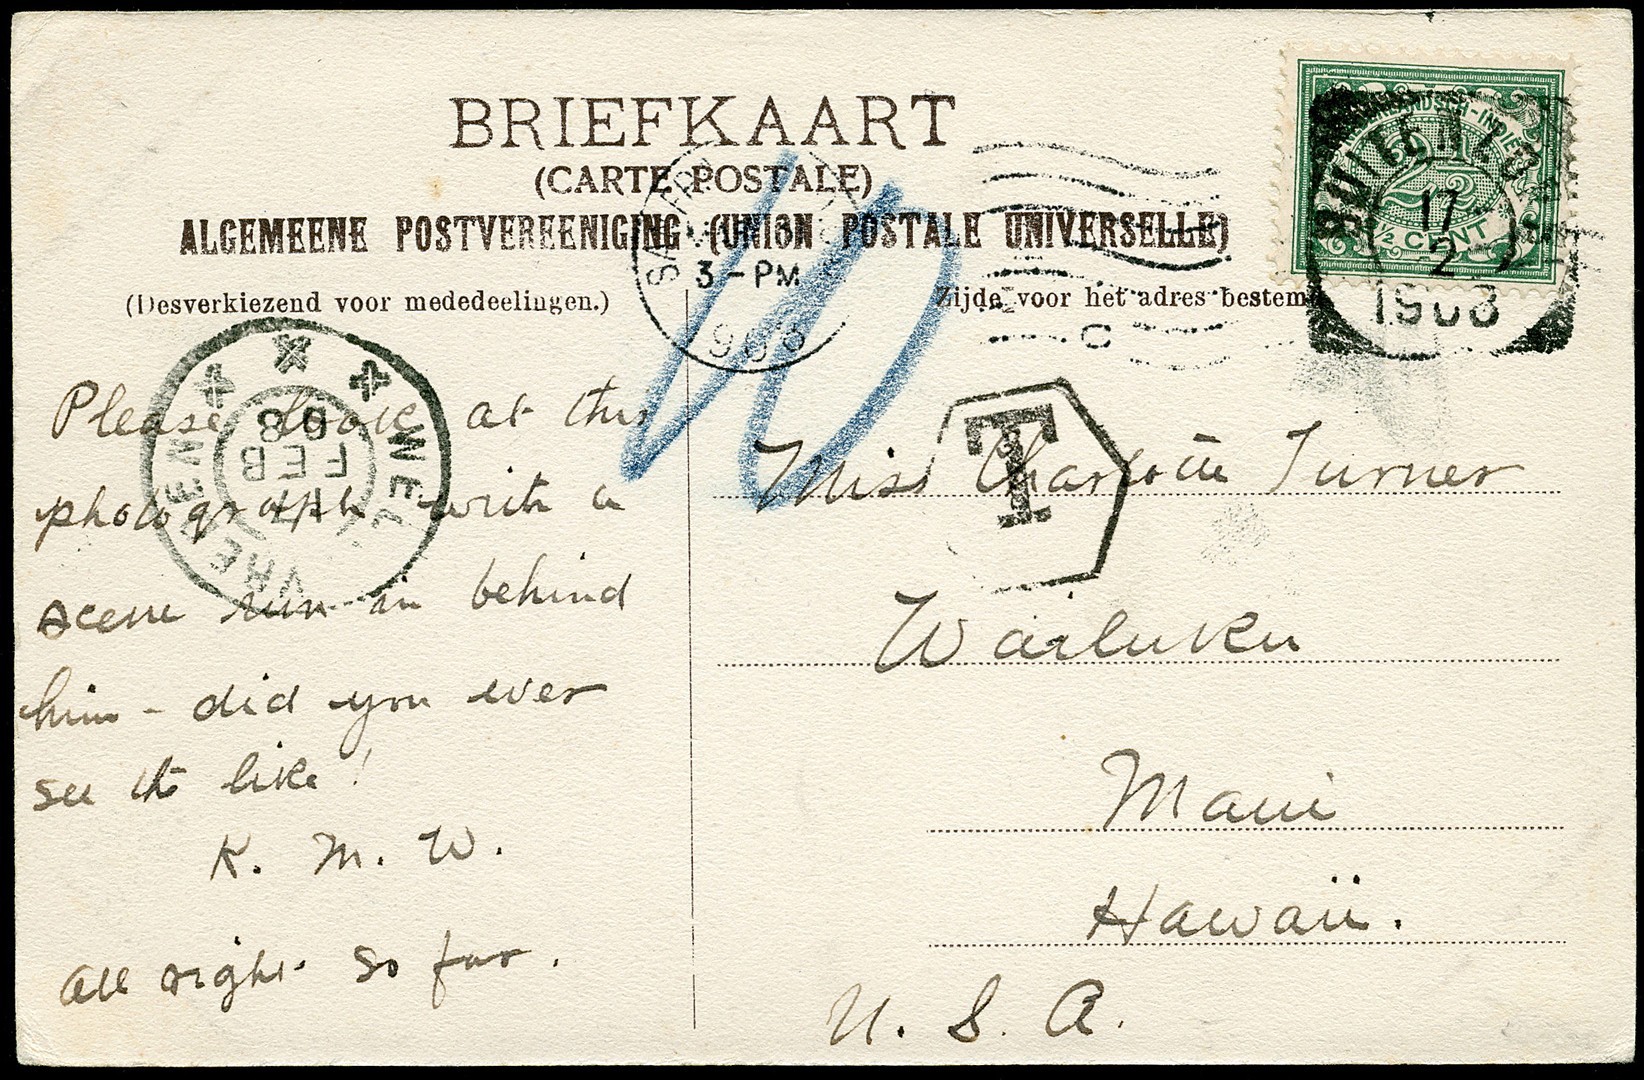 BRIEFKAART
(CARTE POSTALE)
ALGEMEENE POSTVEREENIGING (UNION POSTALE UNIVERSELLE)
(Desverkiezend voor mededeelingen.)
Zijde voor het adres bestem
NEDERLANDSCH-INDIË
2½
2½ CENT
BUITENZORG
17
2
1908
SAN FRAN
3-PM
1908
C
WELTEVREDEN
17
FEB
08
T
10
Please look at this
photograph with a
scene run in behind
him - did you ever
see the like!
K. M. W.
All right so far.
Miss Charlotte Turner
Wailuku
Maui
Hawaii.
U. S. A.